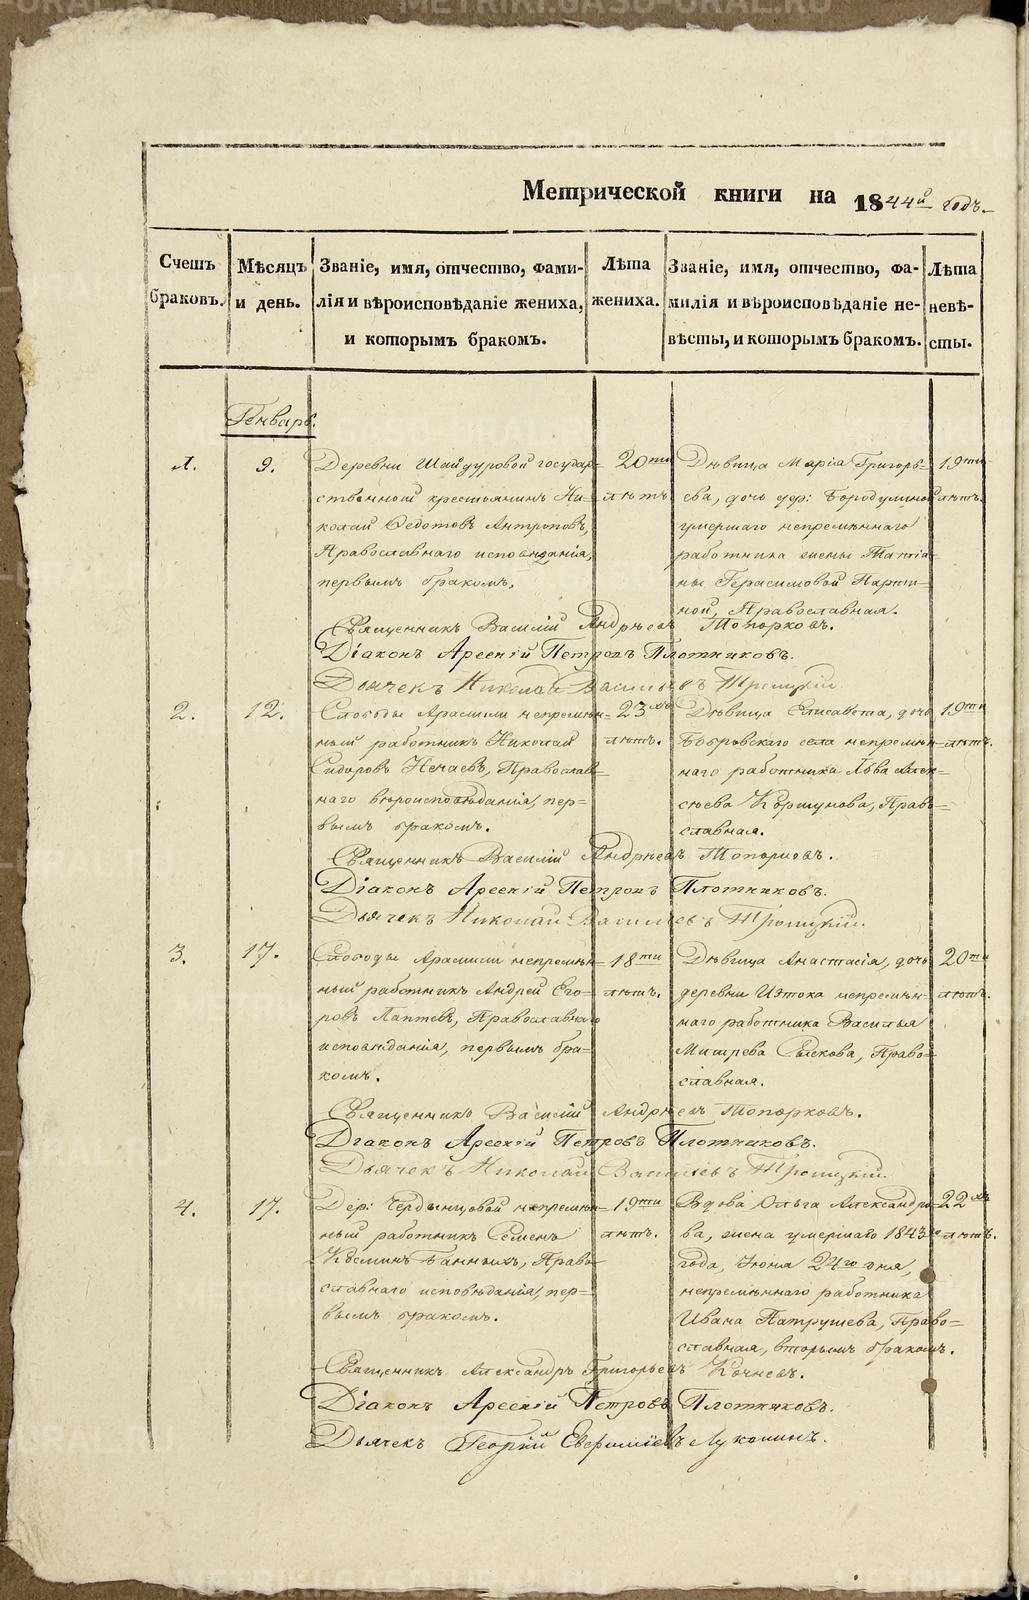 METRIKI.GASO-URAL.RU
Метрической книги на 1844й годъ.
Счетъ браковъ.
Мѣсяцъ и день.
Званіе, имя, отчество, фами-
лія и вѣроисповѣданіе жениха,
и которымъ бракомъ.
Лѣта
жениха.
Званіе, имя, отчество, фа-
милія и вѣроисповѣданіе не-
вѣсты, и которымъ бракомъ.
Лѣта
невѣ-
сты.
Генварь.
1.
9.
Деревни Шайдуровой государ=
ственной крестьянинъ Ни=
колай Федотовъ Антроповъ,
Православнаго исповѣданія,
первымъ бракомъ.
20ти
лѣтъ
Дѣвица Марія Григорь=
ева, дочь дер: Бородулиной
умершаго непремѣннаго
работника жены Татіа=
ны Герасимовой
ной, Православная.
19ти
лѣтъ.
Священникъ Василій Андреевъ Топорковъ.
Діаконъ Арсеній Петровъ Плотниковъ.
Дьячекъ Николай Васильевъ Троицкій
2.
12.
Слободы Арамили непремѣн=
ный работникъ Николай
Сидоровъ Нечаевъ, Православ=
наго вѣроисповѣданія, пер=
вымъ бракомъ.
23хъ
лѣтъ.
Дѣвица Елисавета, дочь
Бобровскаго села непремѣн=
наго работника Льва Алек=
сѣева Коршунова, Право=
славная.
19ти
лѣтъ.
Священникъ Василій Андреевъ Топорковъ.
Діаконъ Арсеній Петровъ Плотниковъ.
Дьячекъ Николай Васильевъ Троицкій.
3.
17.
Слободы Арамили непремѣн=
ный работникъ Андрей Его=
ровъ Лаптевъ, Православнаго
исповѣданія, первымъ бра=
комъ.
18ти
лѣтъ.
Дѣвица Анастасія, дочь
деревни Истока непремѣн=
наго работника Василья
Сыскова, Право=
славная.
20ти
лѣтъ.
Священникъ Василій Андреевъ Топорковъ.
Діаконъ Арсеній Петровъ Плотниковъ.
Дьячекъ Николай Васильевъ Троицкій.
4.
17.
Дер: Чердынцовой непремѣн=
ный работникъ Семенъ
Космин Банныхъ, Право=
славнаго исповѣданія, пер=
вымъ бракомъ.
19ти
лѣтъ.
Вдова Ольга Александро=
ва, жена умершаго 1843го
года, Іюня 24го дня,
непремѣннаго работника
Ивана Патрушева, Право=
славная, вторымъ бракомъ.
22хъ
лѣтъ.
Священникъ Александръ Григорьевъ Кочневъ.
Діаконъ Арсеній Петровъ Плотниковъ.
Дьячекъ Георгій Евфиміевъ Луканинъ.